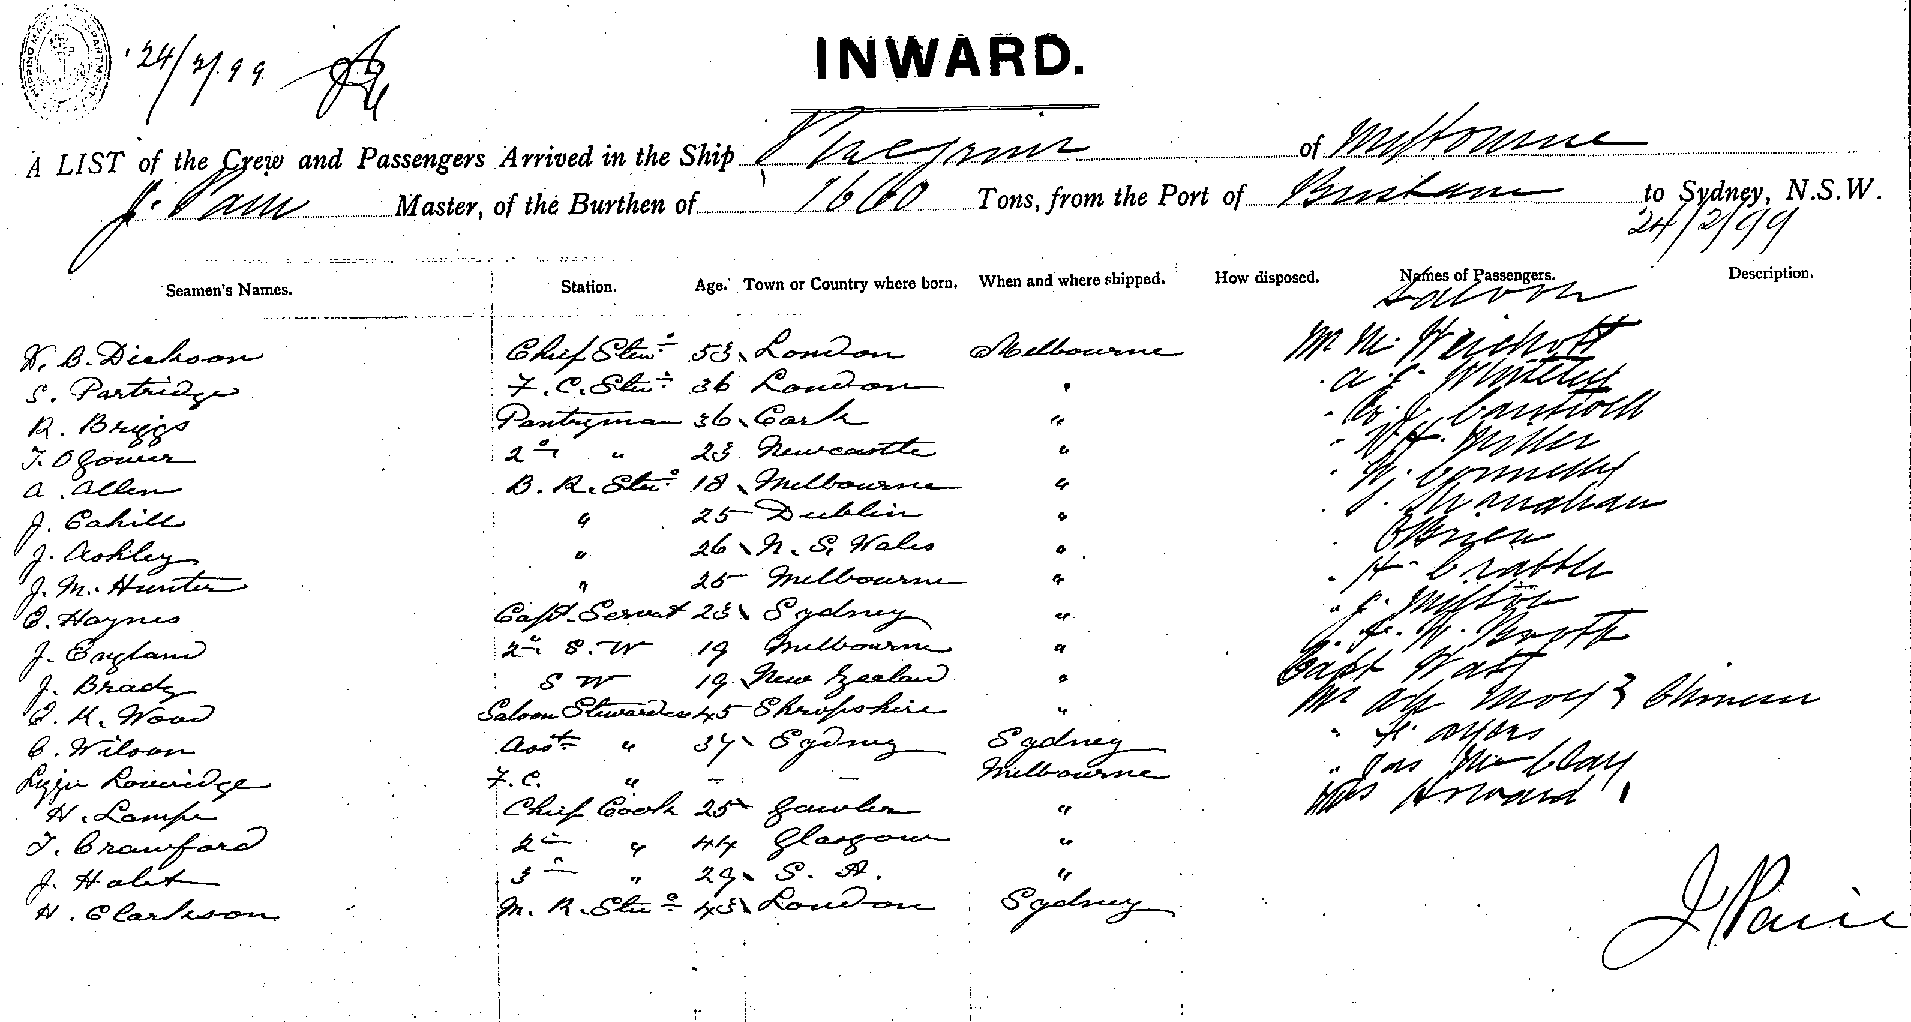 24/2/99
INWARD.
A LIST of the Crew and Passengers Arrived in the Ship of Melbourne
J. Pain Master, of the Burthen of 1660 Tons, from the Port of Brisbane to Sydney, N.S.W.
24/2/99
Seamen's Names. Station. Age. Town or Country where born. When and where shipped. How disposed. Names of Passengers. Description.
Saloon
B. Dickson Chief Stewd 53 London Melbourne Mr M.
S. Partridge F. C. Stewd 36 London " " A. E.
R. Briggs Pantryman 36 Cork " " Cantwell
T. O'Gower 2nd " 23 Newcastle " " Miller
A. Allen B. R. Stewd 18 Melbourne " " Connelly
J. Cahill " 25 Dublin " " Shanahan
J. Ashley " 26 N. S. Wales " " O'Brien
J. M. Hunter " 25 Melbourne " " H. Crabbe
E. Haynes Capt. Servat 23 Sydney " " J.
J. England 2nd S. W 19 Melbourne "
J. Brady S W 19 New Zealand " Capt Watt
Wood Saloon Stewardess 45 Shropshire " Mr Ah Moy
C. Wilson Asst " 37 Sydney Sydney " Ayers
Loveridge F. C. " - - Melbourne " Jas
H. Lampe Chief Cook 25 Gawler " Howard
T. Crawford 2nd " 44 Glasgow "
J. Halet 3rd " 29 S. A. "
H. Clarkson M. R. Stewd 43 London Sydney
J Pain